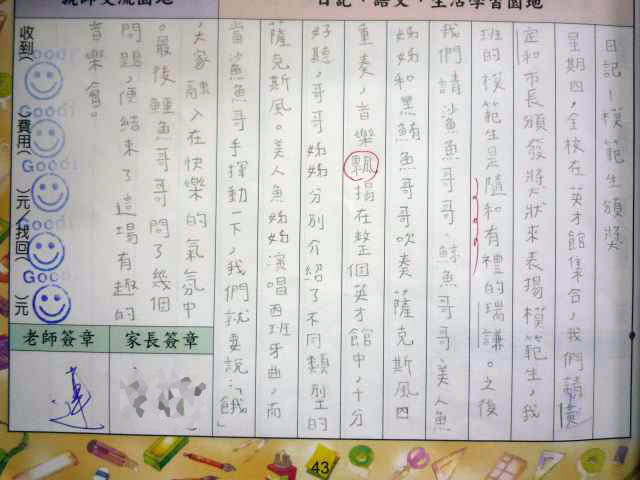 日記、語文、生活學習園地
親師交流園地
日記–模範生頒獎
星期四,全校在英才館集合,我們請憲
定和市長頒發獎狀來表揚模範生,我
班的模範生是隨和有禮的瑞謙。之後
我們請鯊魚哥哥、鯨魚哥哥、美人魚
姊姊和黑鮪魚哥哥吹奏薩克斯風四
重奏,音樂飄揚在整個英才館中,十分
好聽,哥哥姊姊分別介紹了不同類型的
薩克斯風。美人魚姊姊演唱西班牙曲,而
當鯊魚哥手擺動一下,我們就要說:「餓」
,大家融入在快樂的氣氛中
。最後鯉魚哥哥問了幾個
問題,便結束了這場有趣的
音樂會。
收到( )費用( )元/找回( )元
Good
Good
Good
Good
家長簽章
老師簽章
蓮
43